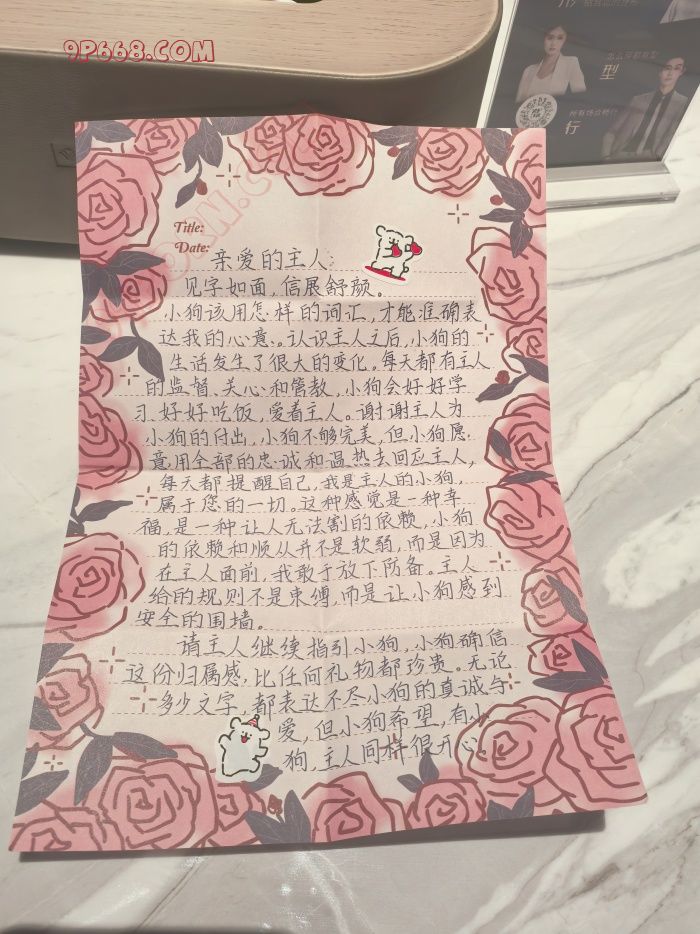 9P668.COM
型
行
Title:
Date:
亲爱的主人:
见字如面,信展舒颜。
小狗该用怎样的词汇,才能准确表
达我的心意。认识主人之后,小狗的
生活发生了很大的变化。每天都有主人
的监督、关心和管教,小狗会好好学
习,好好吃饭,爱着主人。谢谢主人为
小狗的付出,小狗不够完美,但小狗愿
意用全部的忠诚和温热去回应主人,
每天都提醒自己,我是主人的小狗,
属于您的一切。这种感觉是一种幸
福,是一种让人无法割的依赖,小狗
的依赖和顺从并不是软弱,而是因为
在主人面前,我敢于放下防备。主人
给的规则不是束缚,而是让小狗感到
安全的围墙。
请主人继续指引小狗,小狗确信
这份归属感,比任何礼物都珍贵。无论
多少文字,都表达不尽小狗的真诚与
爱,但小狗希望,有小
狗,主人同样很开心。